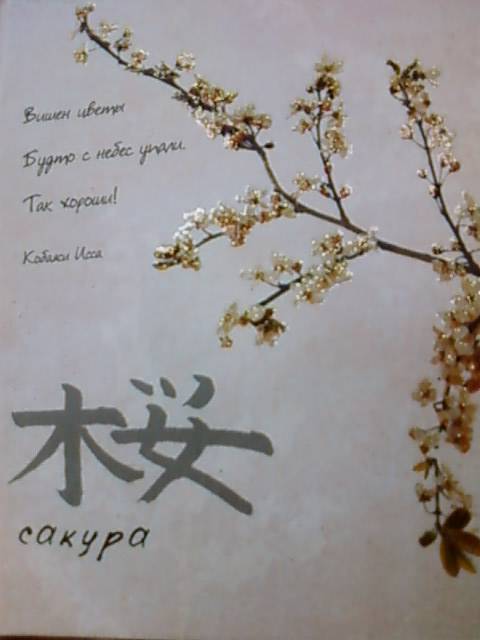 Вишен цветы
Будто с небес упали.
Так хороши!
Кобаяси Исса
桜
сакура